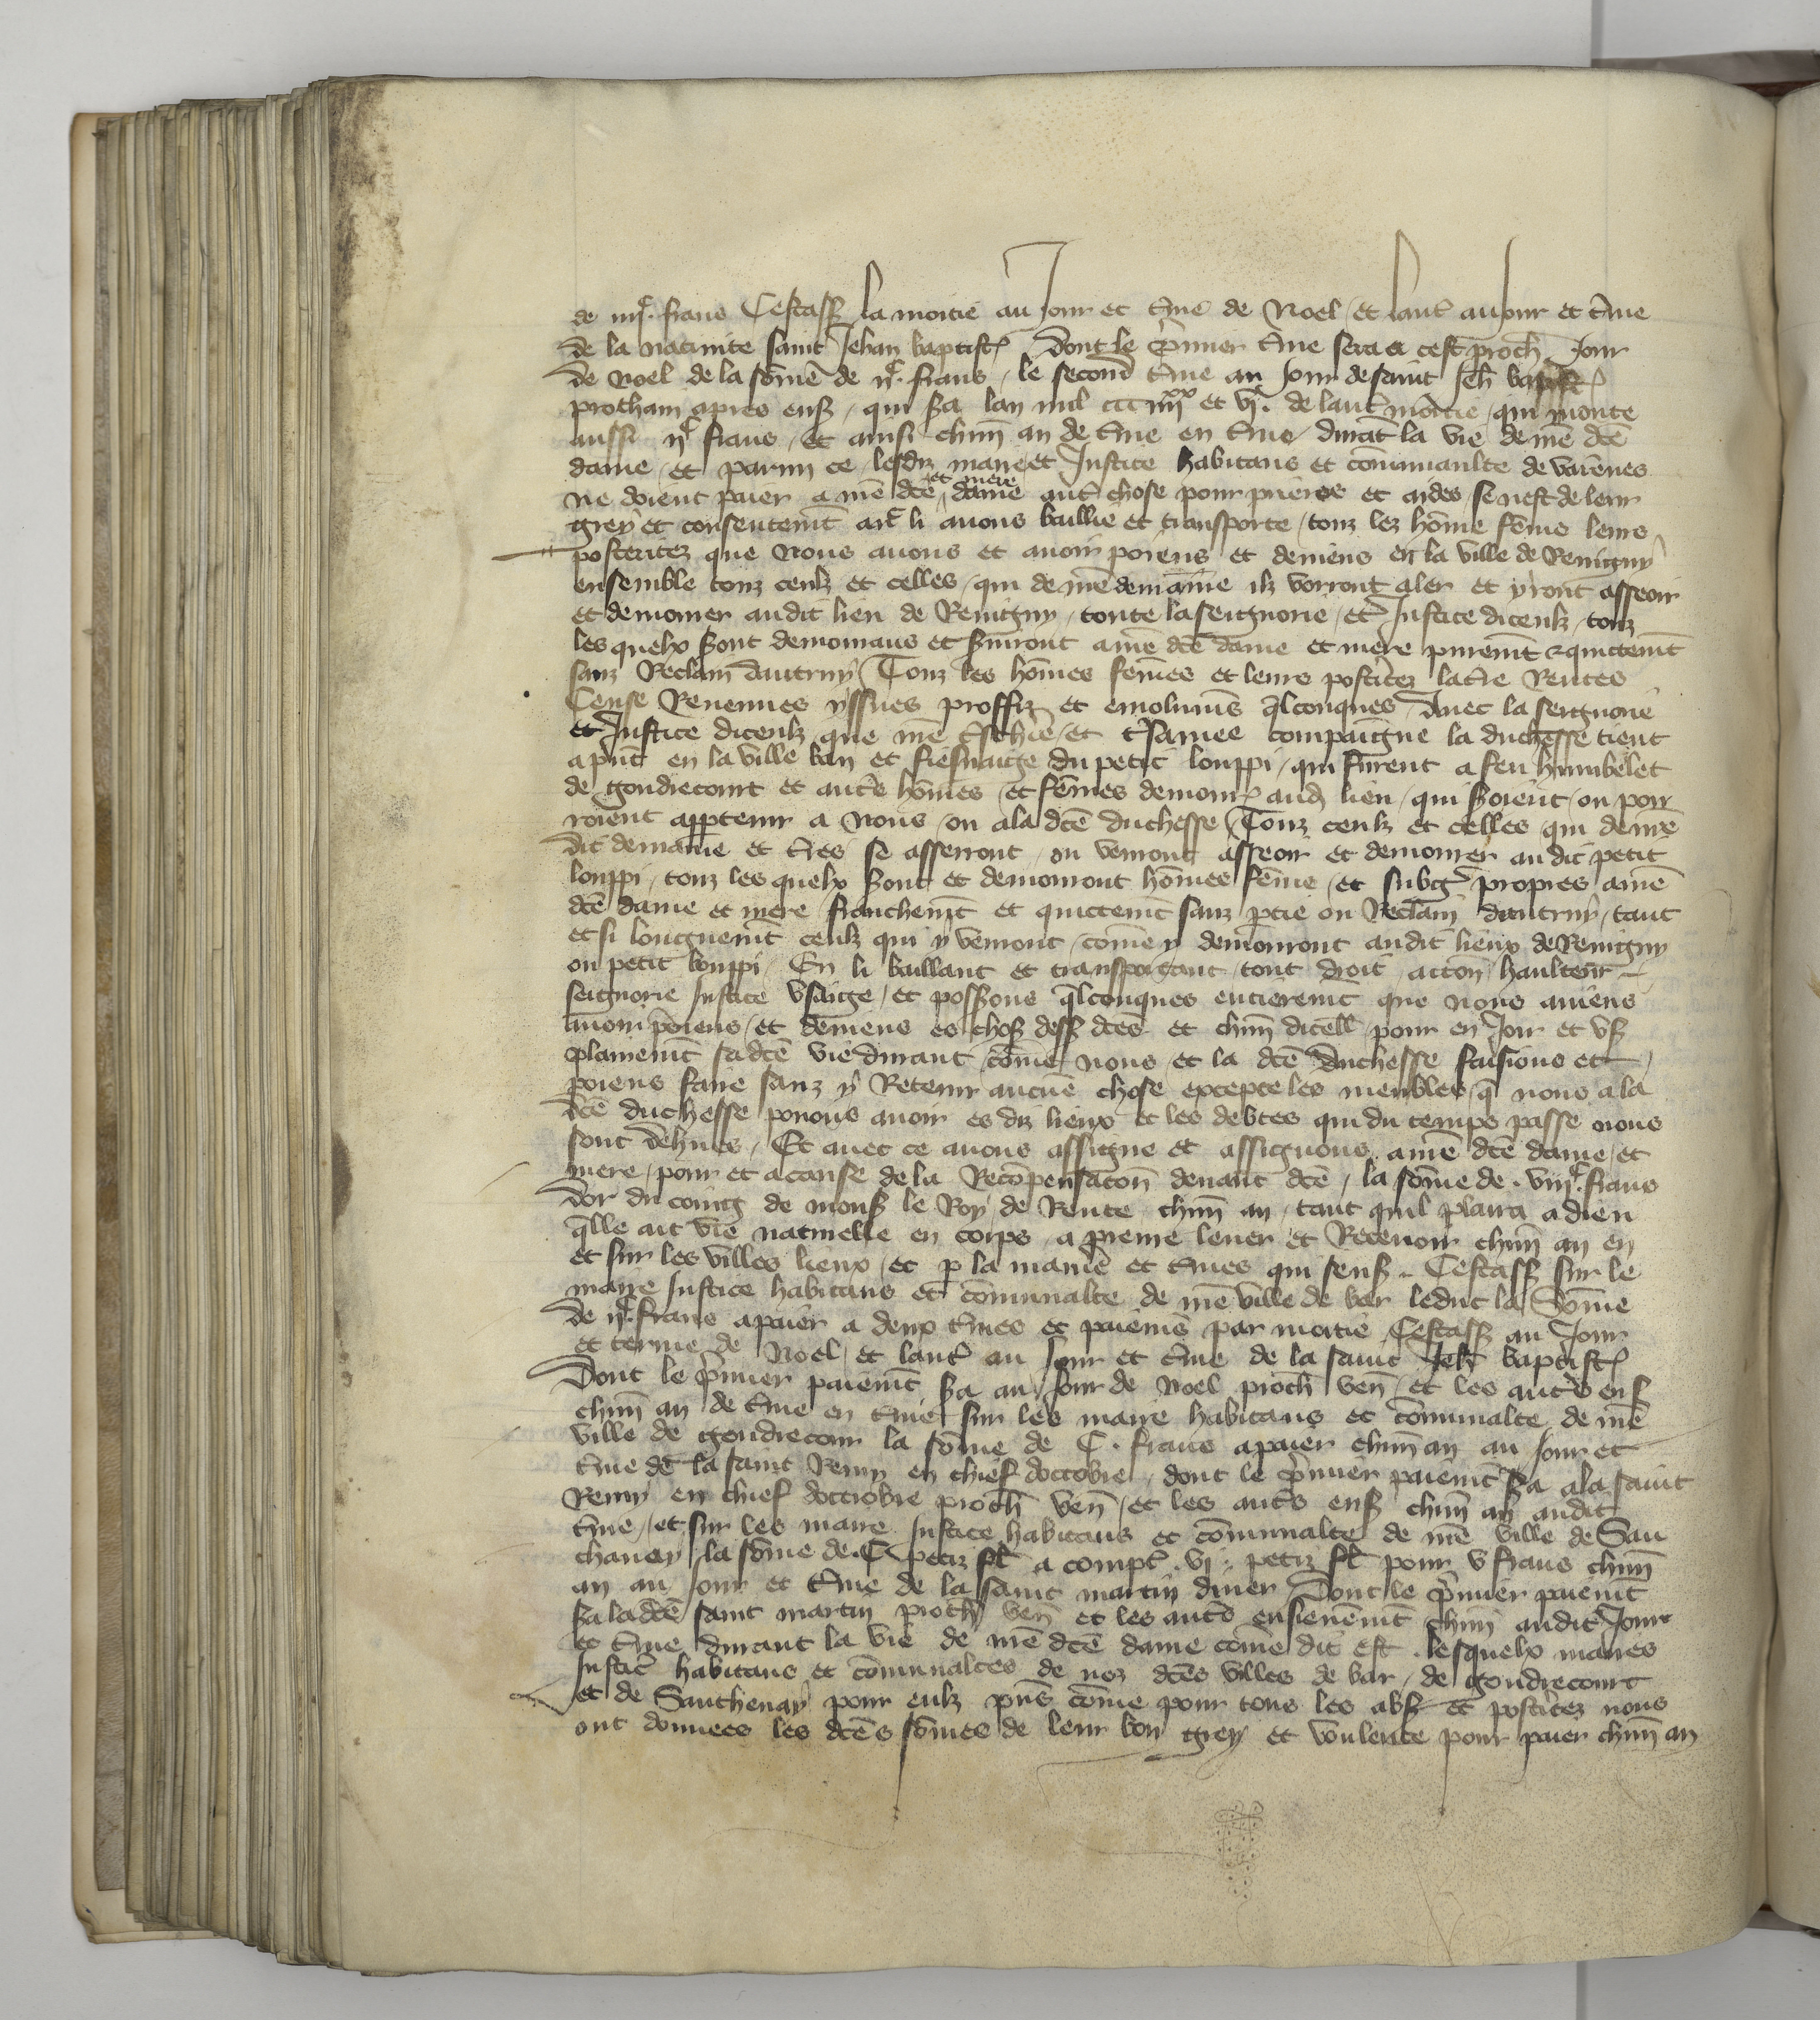 de iiijᶜ. frans Cestass̃ la moitie au Jour et t̃me de Noel / et laut̃ au Jour et t̃me
de la natiuite saint Jehan baptist̃ Dont le p̃mier t̃me sera a cest proch̃ Jour
de Noel de la som̃e de ijᶜ. frans / le second t̃me au Jour de saint Jeh̃ baptist̃
procham apres ens̃ / qui s̃a lan mil ccc iiijˣˣ et vj. de laut̃ moitie / qui monte
aussi ijᶜ frans / et ainsi chũn an de t̃me en t̃me / durãt la vie de mẽ dc̃e
dame / et parmi ce / lesdiz maire et Justice habitans et cõmunaulte de varẽnes
ne doient paier a mẽ dc̃e et mere dame aut̃ chose pour prieres et aides se nest de leur
grey et consentemt̃ Itẽ li auons baillie et transporte / touz lez hõme fẽme leurs
posteritez que Nous auons et auoir poiens et deuiens en la ville de Reuigny
ensemble touz ceulz et celles / qui de mẽ demaine ilz vorront aler et yront asseoir
et demorer audit lieu de Reuigny / toute la seignorie / et Justice diceulz / touz
les quelx sont demorans et s̃uiront a mẽ dc̃e dame et mere puremt̃ & quictemt̃
sanz Reclam dautruy / Touz les hõmes fẽmes et leurs post̃itez la t̃re Rentes
Cense Reuenues yssues proffiz et emolumẽs q̃lconques Auec la seignorie
et Justice diceulz que mẽ t̃schiẽ / et t̃samee compaigne la duchesse tient
a pñt en la ville ban et finaige du petit louppi / qui furent a feu humbelet
de gondrecourt et aut̃e hõmes / et fẽmes demor̃ aud̃ lieu / qui soient / ou por
roient apptenir a Nous / ou a la dc̃e duchesse / Touz ceulz et celles / qui de mẽ
dit demaine et t̃res se asserront / ou venront asseoir et demorer au dit petit
louppi / touz les quelx sont et demorront hõmes fẽme / et subg̃ propres a mẽ
dc̃e dame et mere franchemt̃ et quictemt̃ sanz p̃tie ou Reclam dautruy / tant
et si longuemt̃ ceulz qui y venront / cõme y demorront audit lieux de Reuigny
ou petit louppi / En li baillant et transportant / tout droit / actoñ haulteur
seignorie Justice vsaige / et possons q̃lconques entieremt̃ que nous auiens
auoir poiens / et deuiens es chos̃ dess̃ dc̃es et chũn dicell̃ / pour en Joir et vs̃
plainemt̃ sa dc̃e vie durant / cõme nous / et la dc̃e duchesse faisions et
poiens faire sanz y Retenir aucũe chose excepte les meubles / q̃ nous a la
dc̃e duchesse pouons auoir es diz lieux et les debtes qui du temps passe nous
sont dehues / Et auec ce auons assigne et assignons a mẽ dc̃e dame / et
mere / pour et a cause de la Recõpensatoñ deuant dc̃e / la som̃e de . viijᶜ. frans
dor du coing de mons̃ le Roy / de Rente chũn an / tant quil plaira a dieu
q̃lle ait vie naturelle en corps / a prenre leuer et Receuoir chũn an en
et sur les villes lieux / et p la maniẽ et t̃mes qui sens̃ . Cestass̃ sur le
maire Justice habitans et cõmunalte de mẽ ville de bar leduc la Som̃e
de ijᶜ. frans a paier a deux t̃mes et paiemẽs par moitie Cestass̃ au Jour
et terme de Noel / et laut̃ au Jour et t̃me de la saint Jeh̃ baptist̃
Dont le p̃mier paiemt̃ s̃a au Jour de Noel proch̃ ven̄ / et les aut̃s ens̃
chũn an de t̃me en t̃me sur les maire habitans et cõmunalte de mẽ
ville de gondrecour la som̃e de C . frans a paier chũn an au Jour et
t̃me de la saint Remy en chief doctobre / dont le p̃mier paiemt̃ s̃a a la saint
Remy en chief doctobre proch̃ ven̄ / et les aut̃s ens̃ chũn an audit
t̃me / et sur les maire Justice habitans et cõmunalte de mẽ ville de Sau
chanay / la som̃e de . C petiz fl̃ a compt̃ . vj . petiz fl̃ pour v frans chũn
an au Jour et t̃me de la saint martin diuer / Dont le p̃mier paiemt̃
s̃a la dc̃e saint martin proch̃ ven̄ et les aut̃s ensienemt̃ chũn audit Jour
et t̃me durant la vie de mẽ dc̃e dame cõme dit est . lesquelx maires
Justic̃ habitans et cõmunaltes de noz dc̃es villes de bar / de gondrecourt
et de Sauthenay pour eulz pñs cõme pour tous les abs̃ et post̃itez nous
ont donnees les dc̃es som̃es de leur bon grey et voulente pour paier chũn an